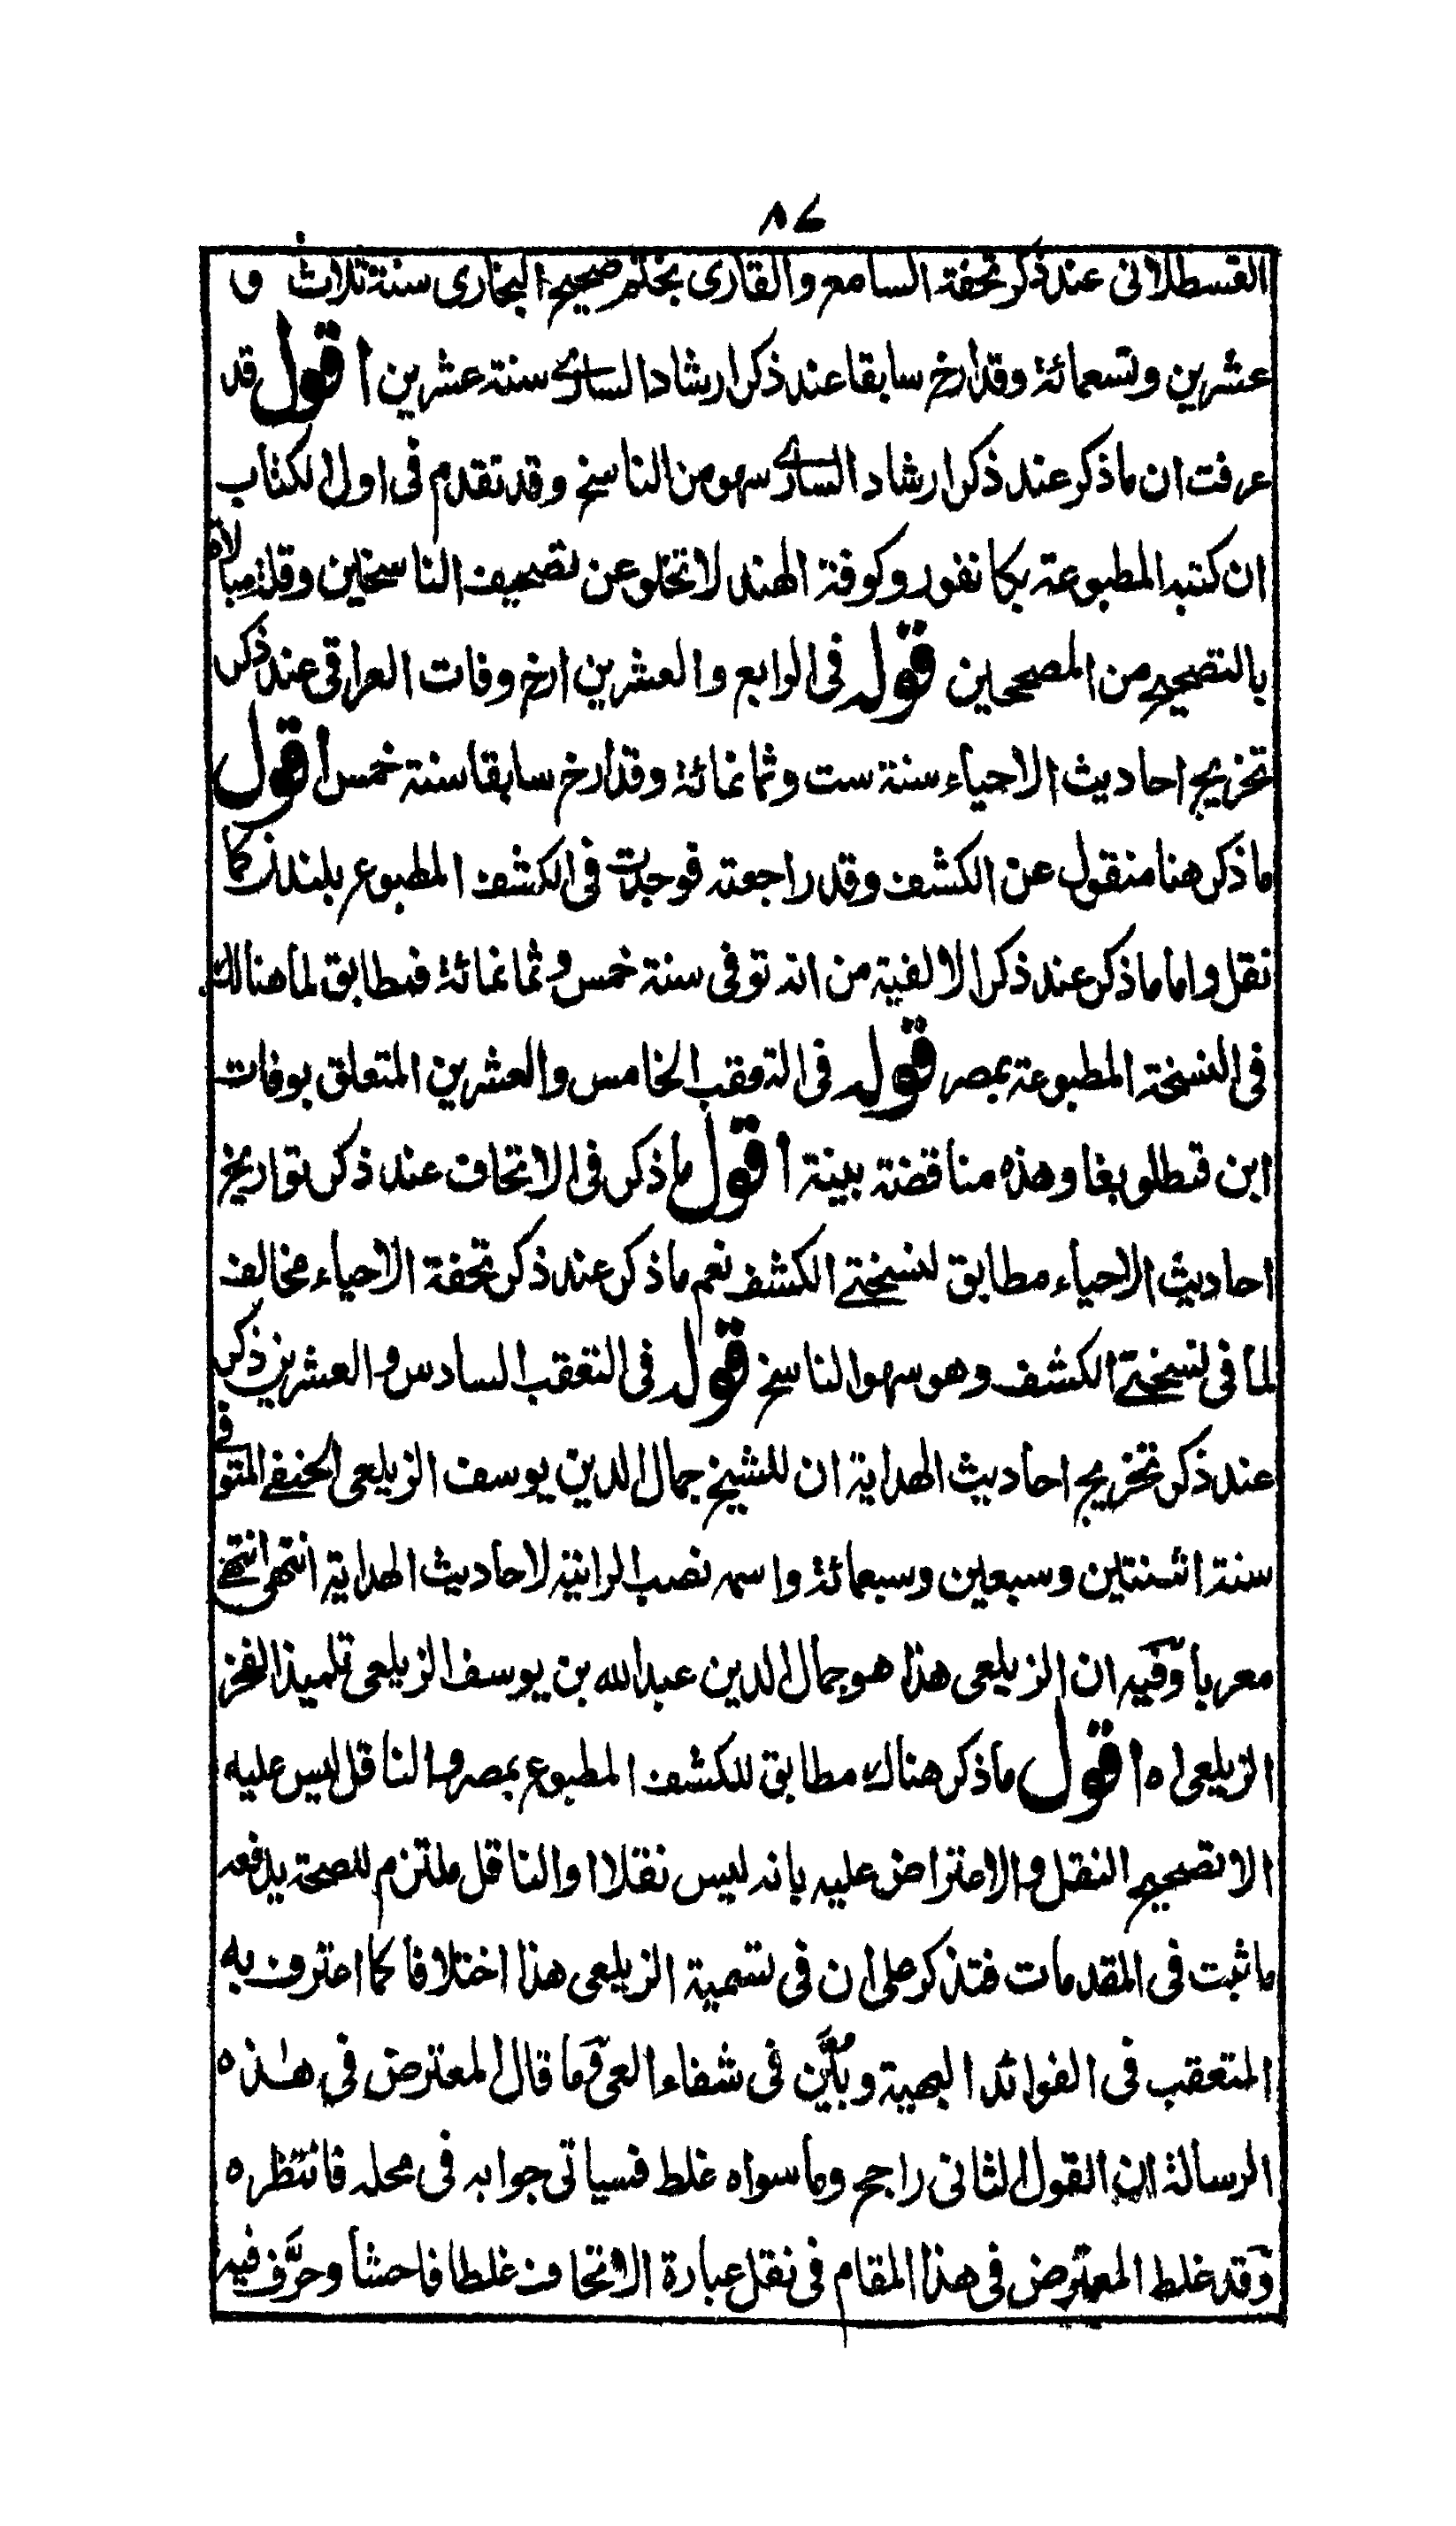 ٨٤
القسطلانى عند ذكر تحفة السامع والقارى بختم صحيح البخارى سنة ثلاث و
عشرين وتسعمائة وقد ارخ سابقا عند ذكر ارشاد السارے سنة عشرين اقول قد
عرفت ان ما ذكر عند ذكر ارشاد السارے سهو من الناسخ وقد تقدم فى اول الكتاب
ان كتبه المطبوعة بكانفور وكوفة الهند لا تخلو عن تصحيف الناسخين وقلة مبالاة
بالتصحيح من المصححين قوله فى الرابع والعشرين ارخ وفات العراقى عند ذكر
تخريج احاديث الاحياء سنة ست وثمانمائة وقد ارخ سابقا سنة خمس اقول
ما ذكر هنا منقول عن الكشف وقد راجعته فوجدت فى الكشف المطبوع بلندن كما
نقل واما ما ذكر عند ذكر الالفية من انه توفى سنة خمس وثمانمائة فمطابق لما هنالك
فى النسخة المطبوعة بمصر قوله فى التعقب الخامس والعشرين المتعلق بوفات
ابن قطلوبغا وهذه مناقضة بينة اقول ما ذكر فى الاتحاف عند ذكر تواريخ
احاديث الاحياء مطابق لنسختے الكشف نعم ما ذكر عند ذكر تحفة الاحياء مخالف
لما فى نسختے الكشف وهو سهو الناسخ قوله فى التعقب السادس والعشرين ذكر
عند ذكر تخريج احاديث الهداية ان للشيخ جمال الدين يوسف الزيلعى الحنفے المتوفے
سنة اثنتين وسبعين وسبعمائة واسمه نصب الراية لاحاديث الهداية انتهى انتهے
معربا وَفيه ان الزيلعى هذا هو جمال الدين عبد الله بن يوسف الزيلعى تلميذ الفخر
الزيلعى اه اقول ما ذكر هناك مطابق للكشف المطبوع بمصر والناقل ليس عليه
الا تصحيح النقل والاعتراض عليه بانه ليس نقلا او الناقل ملتزم للصحة يدفعه
ما ثبت فى المقدمات فتذكر على ان فى تسمية الزيلعى هذا اختلافا كما اعترف به
المتعقب فى الفوائد البهية وبُيِّن فى شفاء العى وَما قال المعترض فى هذه
الرسالة ان القول الثانى راجح وما سواه غلط فسياتى جوابه فى محله فانتظره
وَقد غلط المعترض فى هذا المقام فى نقل عبارة الاتحاف غلطا فاحشا وحرَّف فيه